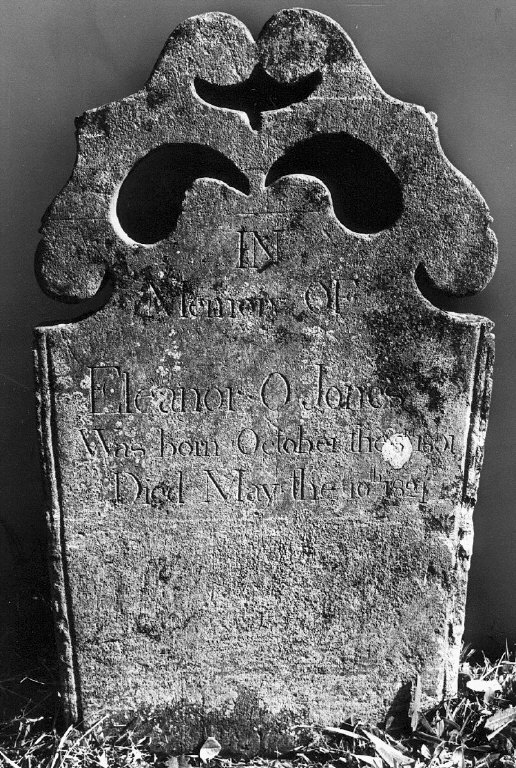 IN
Memory Of
Eleanor O Jones
Was born October the 1801
Died May the 10th 1821